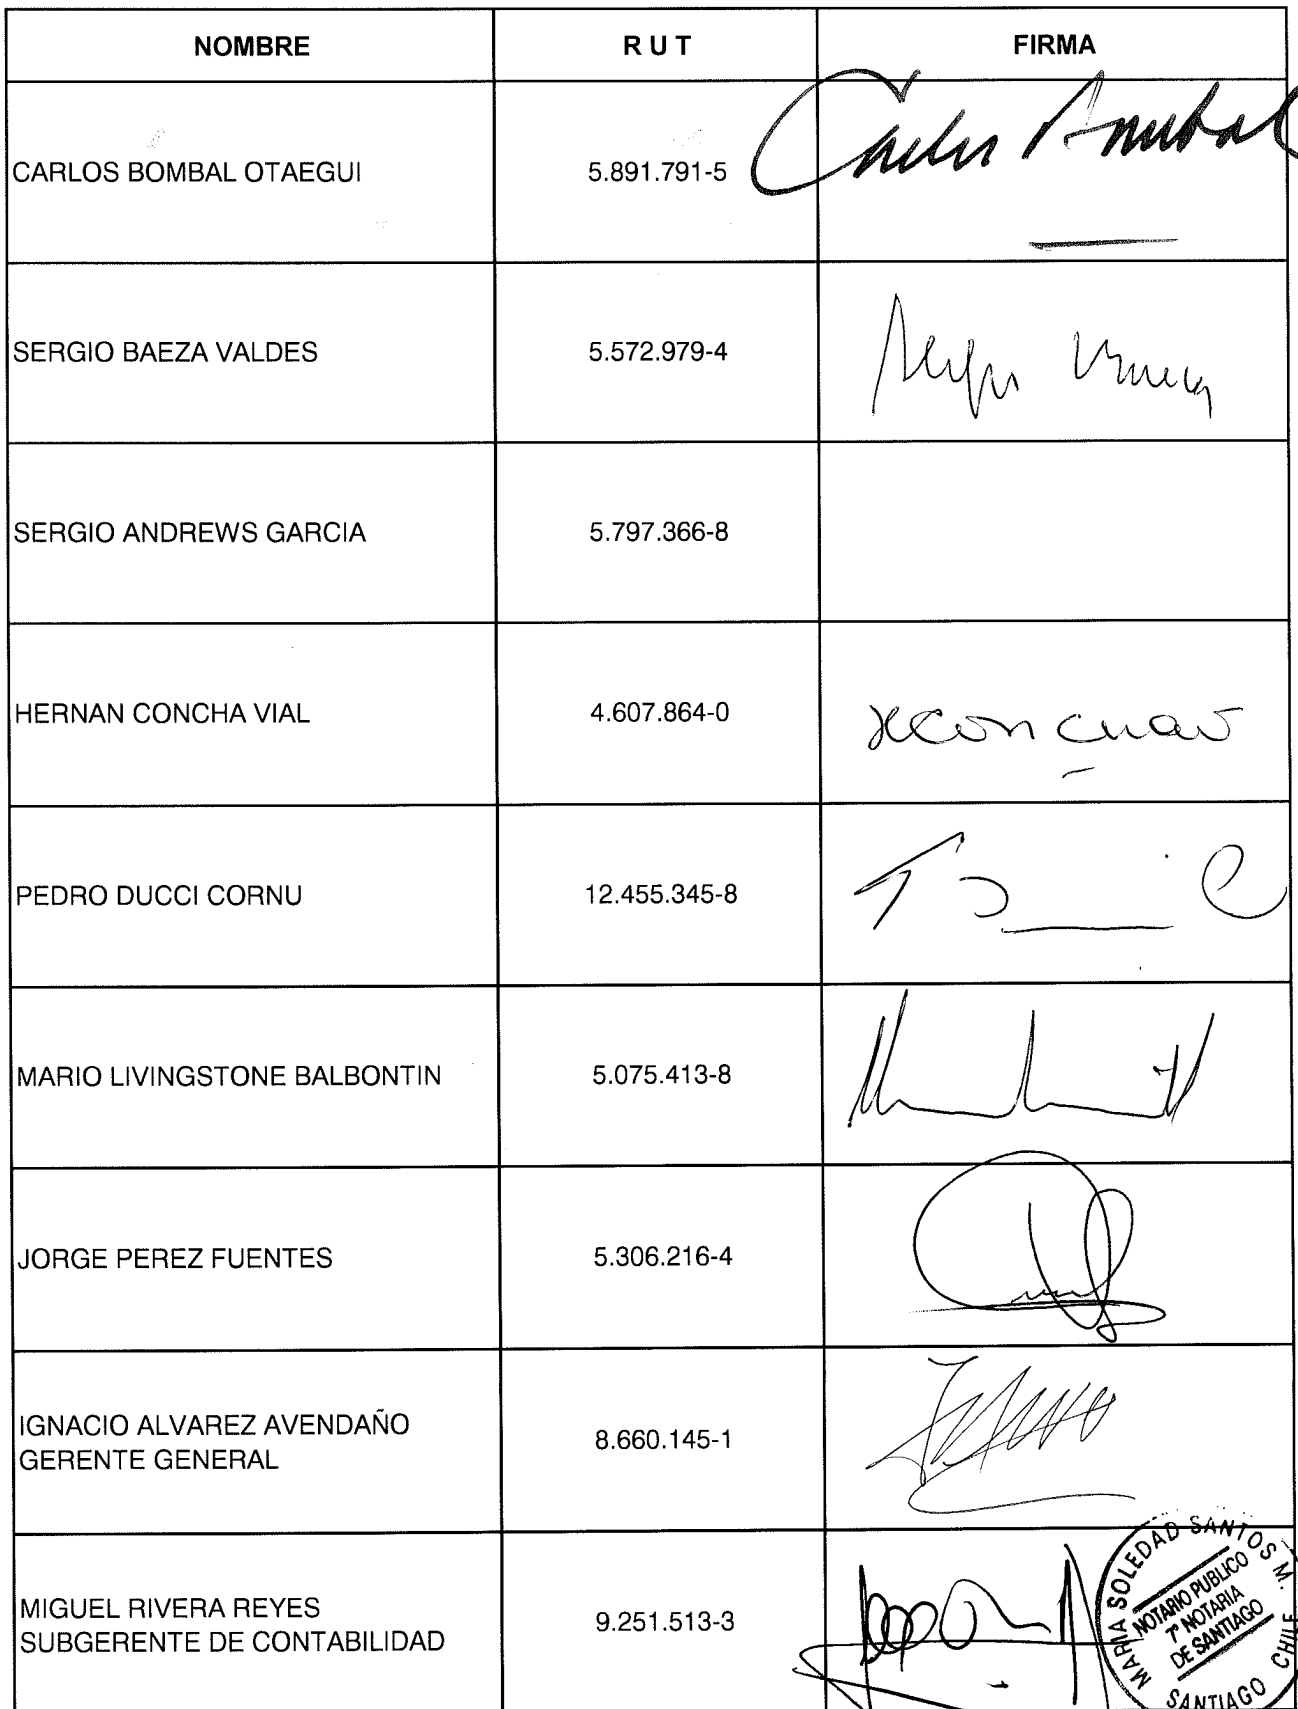 NOMBRE RUT FIRMA
CARLOS BOMBAL OTAEGUI 5.891.791-5 Carlos Bombal
SERGIO BAEZA VALDES 5.572.979-4 Sergio
SERGIO ANDREWS GARCIA 5.797.366-8
HERNAN CONCHA VIAL 4.607.864-0
PEDRO DUCCI CORNU 12.455.345-8
MARIO LIVINGSTONE BALBONTIN 5.075.413-8
JORGE PEREZ FUENTES 5.306.216-4
IGNACIO ALVAREZ AVENDAÑO
GERENTE GENERAL 8.660.145-1
MIGUEL RIVERA REYES
SUBGERENTE DE CONTABILIDAD 9.251.513-3
MARIA SOLEDAD SANTOS M.
NOTARIO PUBLICO
7ª NOTARIA
DE SANTIAGO
SANTIAGO CHILE